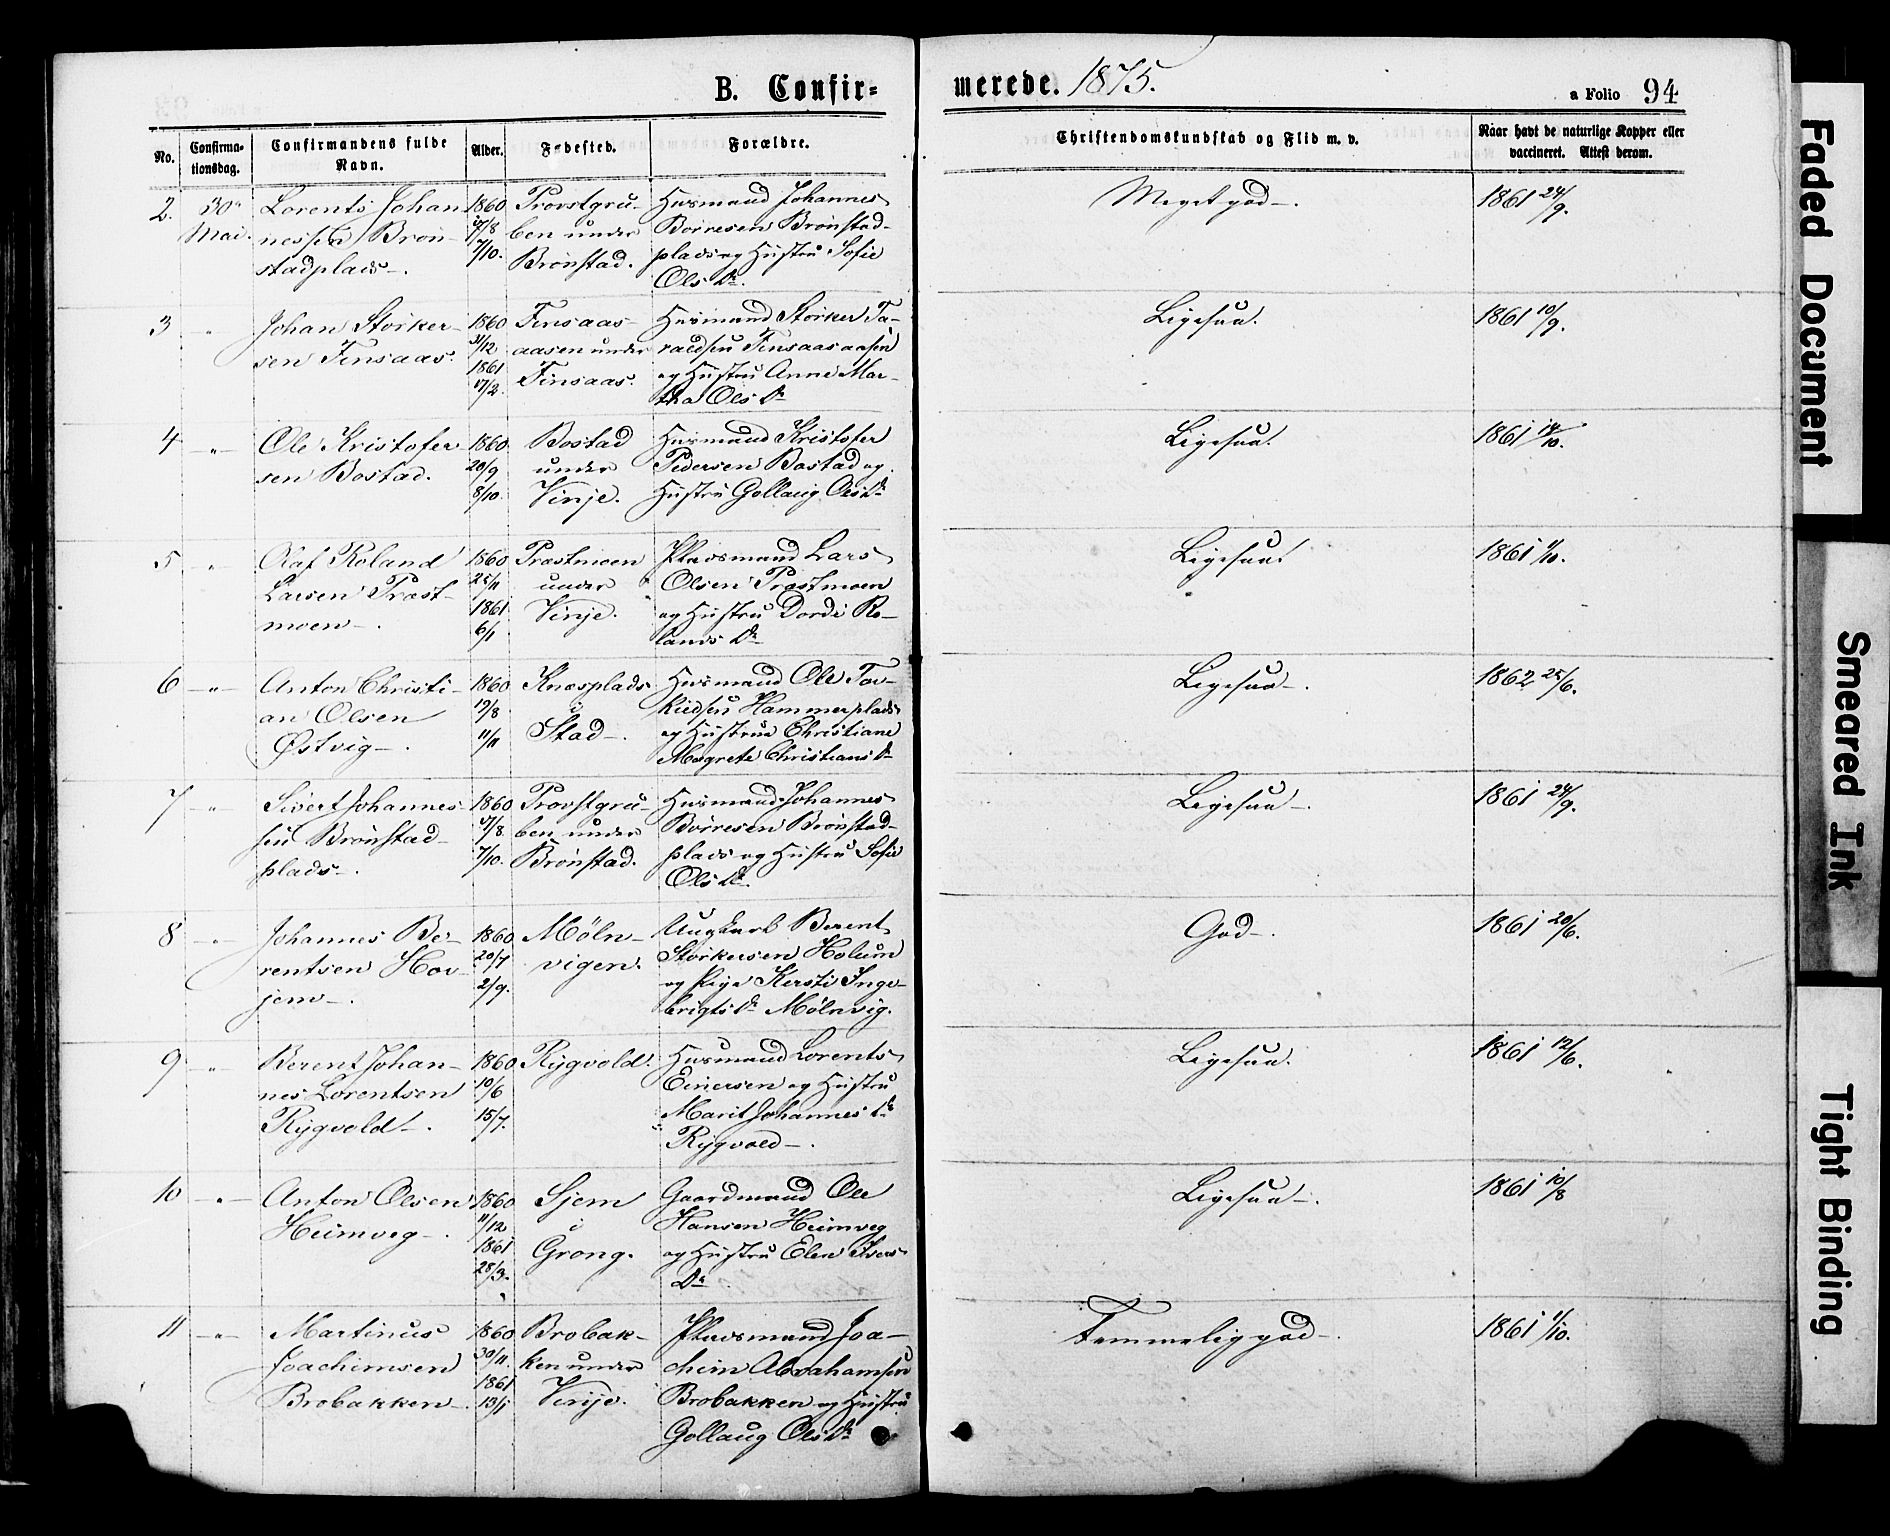 B. Confir-
merede. 1875.
a Folio 94
No.
Confirma-
tionsdag.
Confirmandens fulde
Navn.
Alder.
Fødested.
Forældre.
Christendomskundskab og Flid m. v.
Naar havt de naturlige Kopper eller
vaccineret. Attest derom.
2.
30te
Mai.
Lorents Johan
nessen Brøn-
stadplads.
1860
17/8
7/10.
Provstgru-
ben under
Brønstad.
Husmand Johannes
Børresen Brønstad-
plads og Hustru Sofie
Ols Dr.
Meget god.
1861 24/9.
3
"
Johan Storker-
sen Finsaas.
1860
31/12
1861
17/2.
Finsaas-
aasen under
Finsaas.
Husmand Storker Ta-
raldsen Finsaasaasen
og Hustru Anne Mar-
tha Ols Dr
Ligesaa.
1861 10/9.
4
"
Ole Kristofer
sen Bostad.
1860
20/9
8/10.
Bostad
under
Vinje.
Husmand Kristofer
Pedersen Bostad og
Hustru Gollaug Ols Dr
Ligesaa.
1861 14/10.
5
"
Olaf Roland
Larsen Præst-
moen.
1860
25/11
1861
6/1
Præstmoen
under
Vinje.
Pladsmand Lars
Olsen Præstmoen
og Hustru Dordi Ro-
lands Dr
Ligesaa.
1861 1/10.
6
"
Anton Christi-
an Olsen
Østvig.
1860
19/8
11/11
Knæsplads
i
Stad.
Husmand Ole Tor-
kildsen Hammerplads
og Hustrue Christiane
Margrete Christians Dr
Ligesaa.
1862 25/6.
7
"
Sivert Johannes
sen Brønstad
plads.
1860
17/8
7/10.
Provstgru-
ben under
Brønstad.
Husmand Johannes
Børresen Brønstad-
plads og Hustru Sofie
Ols Dr.
Ligesaa.
1861 24/9.
8
"
Johannes Be-
rentsen Hov-
jem.
1860
20/7
2/9.
Møln-
vigen.
Ungkarl Berent
Storkersen Holum
og Pige Kersti Inge-
brigts Dr Mølnvig.
God.
1861 20/6.
9
"
Berent Johan-
nes Lorentsen
Rygvold.
1860
10/6
15/7.
Rygvold.
Husmand Lorents
Einersen og Hustru
Marit Johannes Dr
Rygvold.
Ligesaa.
1861 12/6.
10
"
Anton Olsen
Heimveg.
1860
11/12
1861
28/3.
Sjem
i
Grong.
Gaardmand Ole
Hansen Heimveg
og Hustru Elen Ivers
Dr
Ligesaa.
1861 10/8
11
"
Martinus
Joachimsen
Brobakken
1860
30/11.
1861
13/1
Brobak-
ken under
Vinje.
Pladsmand Joa-
chim Abrahamsen
Brobakken og Hustru
Gollaug Ols Dr
Temmelig god.
1861 1/10.
Faded Document
Smeared Ink
Tight Binding